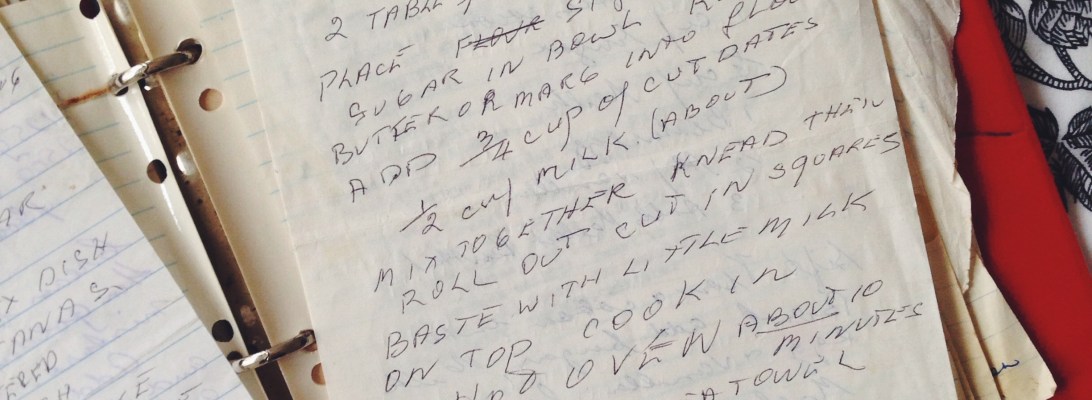 AR.
X DISH
ERED
2 TABLE
PLACE FLOUR
SUGAR IN BOWL
BUTTER OR MARG INTO FLOU
ADD 3/4 CUP of CUT DATES
1/2 cup MILK (ABOUT)
MIX TOGETHER KNEAD THEN
ROLL OUT CUT IN SQUARES
BASTE WITH LITTLE MILK
ON TOP COOK IN
HOT OVEN ABOUT 10
MINUTES
A TOWEL